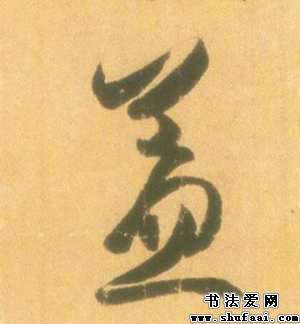 盖
书法爱网
www.shufaai.com